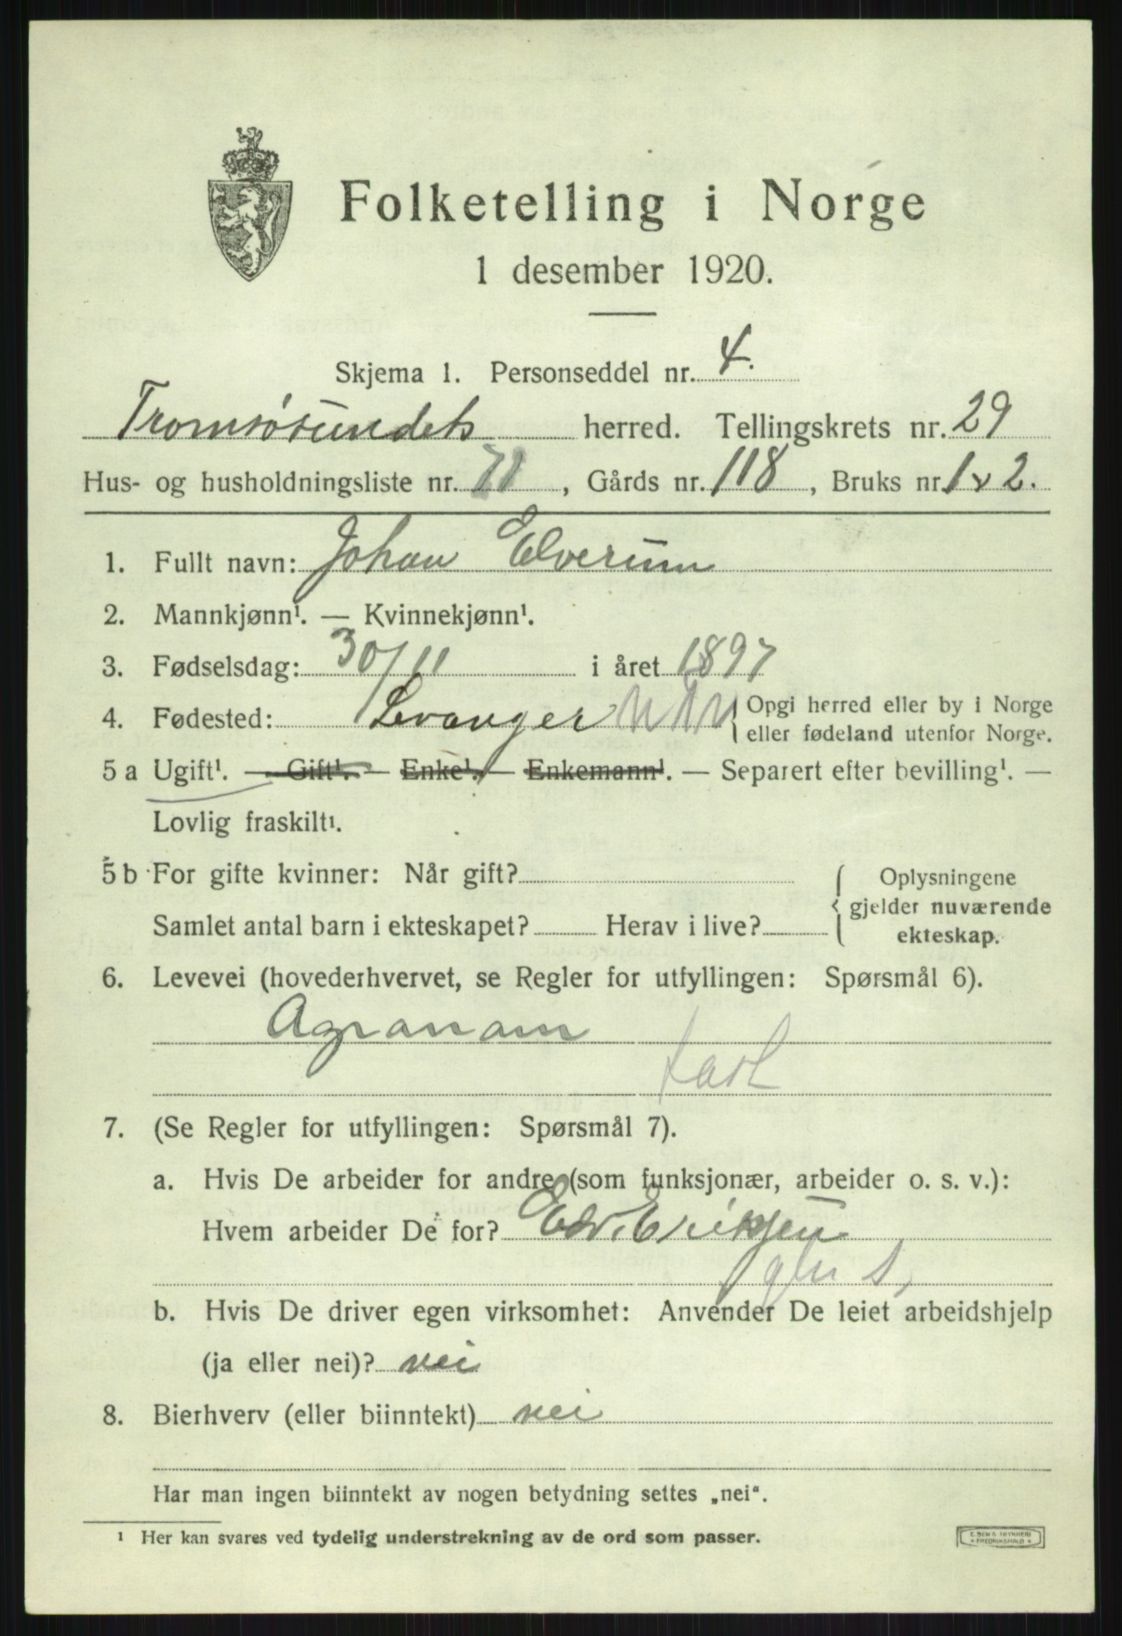 Folketelling i Norge
1 desember 1920.
Skjema 1. Personseddel nr. 4.
Tromsøsundets herred. Tellingskrets nr. 29
Hus- og husholdningsliste nr. 71, Gårds nr. 118, Bruks nr. 1 & 2.
1. Fullt navn: Johan Elverum
2. Mannkjønn¹. — Kvinnekjønn¹.
3. Fødselsdag: 30/11 i året 1897
4. Fødested: Levanger { Opgi herred eller by i Norge
eller fødeland utenfor Norge.
5 a Ugift¹. — Gift¹. — Enke¹. — Enkemann¹. — Separert efter bevilling¹. —
Lovlig fraskilt¹.
5 b For gifte kvinner: Når gift? { Oplysningene
gjelder nuværende
Samlet antal barn i ekteskapet? Herav i live?
ekteskap.
6. Levevei (hovederhvervet, se Regler for utfyllingen: Spørsmål 6).
Agronom
7. (Se Regler for utfyllingen: Spørsmål 7).
a. Hvis De arbeider for andre (som funksjonær, arbeider o. s. v.):
Hvem arbeider De for? Edv. Eriksen
b. Hvis De driver egen virksomhet: Anvender De leiet arbeidshjelp
(ja eller nei)? nei
8. Bierhverv (eller biinntekt) nei
Har man ingen biinntekt av nogen betydning settes „nei“.
¹ Her kan svares ved tydelig understrekning av de ord som passer.